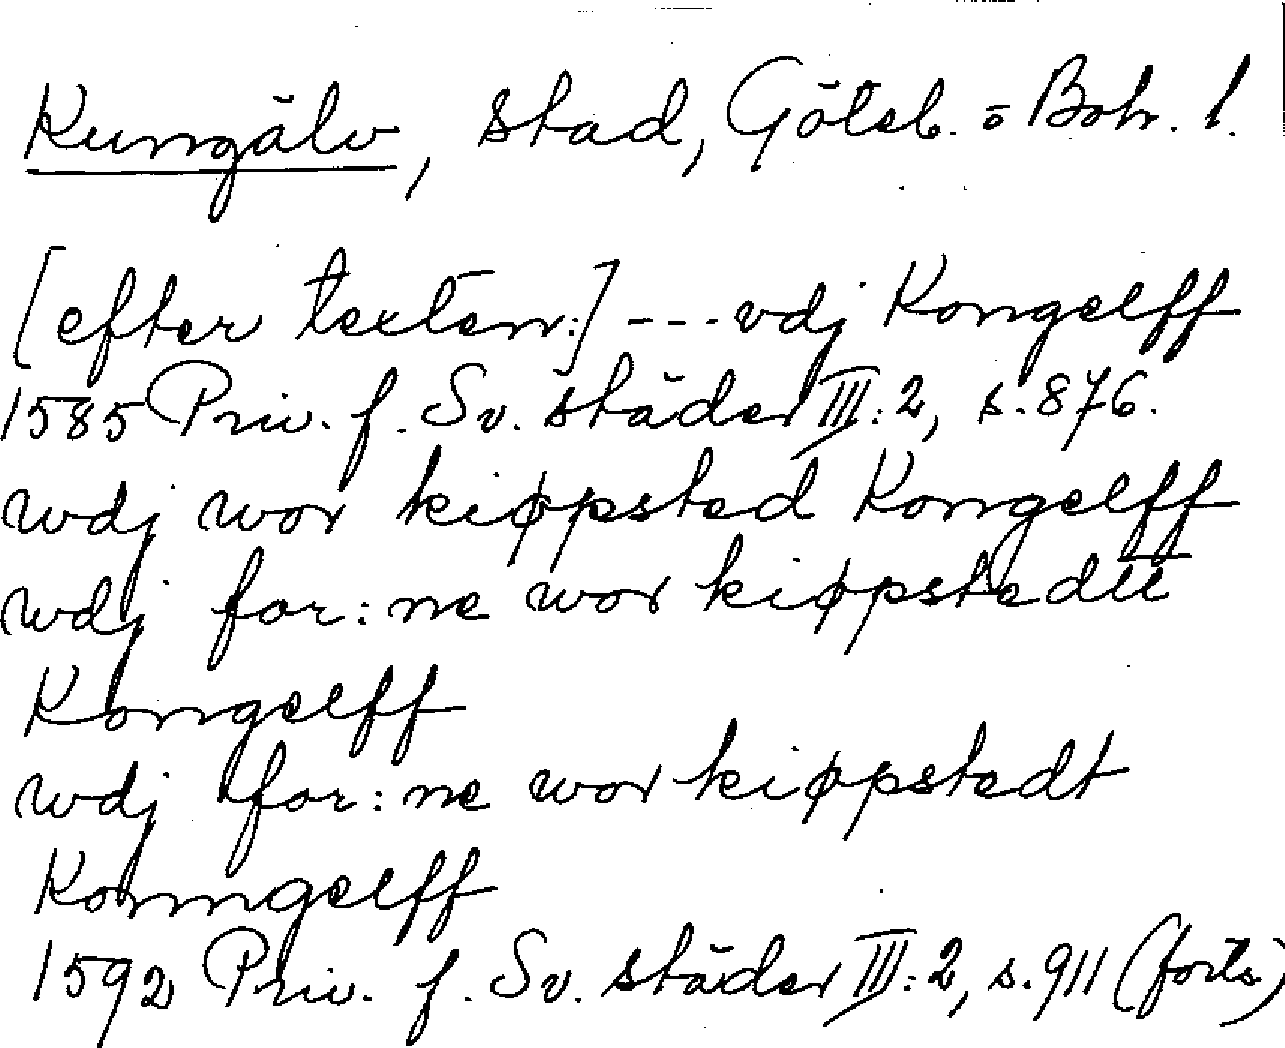 Kungälv, stad, Götab. o Boh. l.
[efter texten:] --- vdj Kongelff
1585 Priv. f. Sv. städer III:2, s. 876.
wdj wor kiøpsted Kongelff
wdj for:ne wor kiøpstedtt
Kongelff
wdj for:ne wor kiøpstedt
Konngelff
1592 Priv. f. Sv. städer III:2, s. 911 (forts)